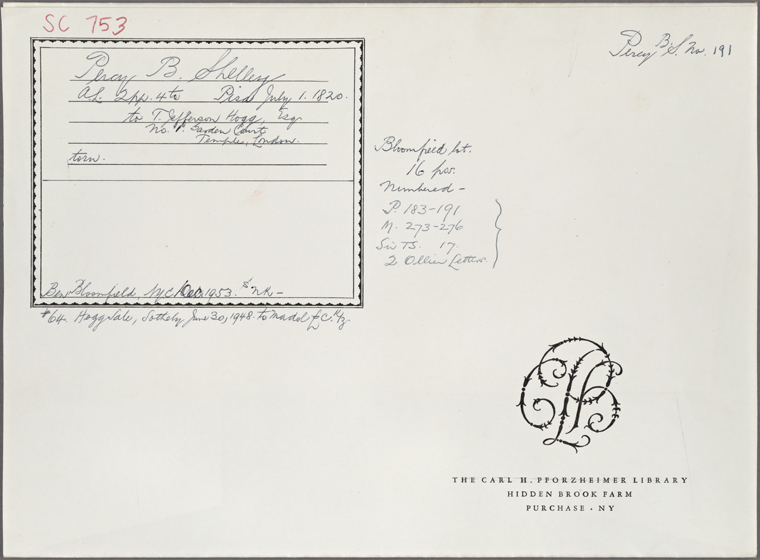 SC 753
Percy B. S. No. 191
Percy B. Shelley
AL. 2pp. 4to Pisa July 1. 1820.
to T. Jefferson Hogg, Esq.
No. 1. Garden Court
Temple, London.
torn.
Bloomfield lot.
16 pcs.
Numbered –
P. 183-191
M. 273-276
Sir TS. 17.
2 Ollier Letters
Ben Bloomfield, NYC Dec. 1953.
#64. Hogg Sale, Sotheby June 30, 1948. to
THE CARL H. PFORZHEIMER LIBRARY
HIDDEN BROOK FARM
PURCHASE · NY